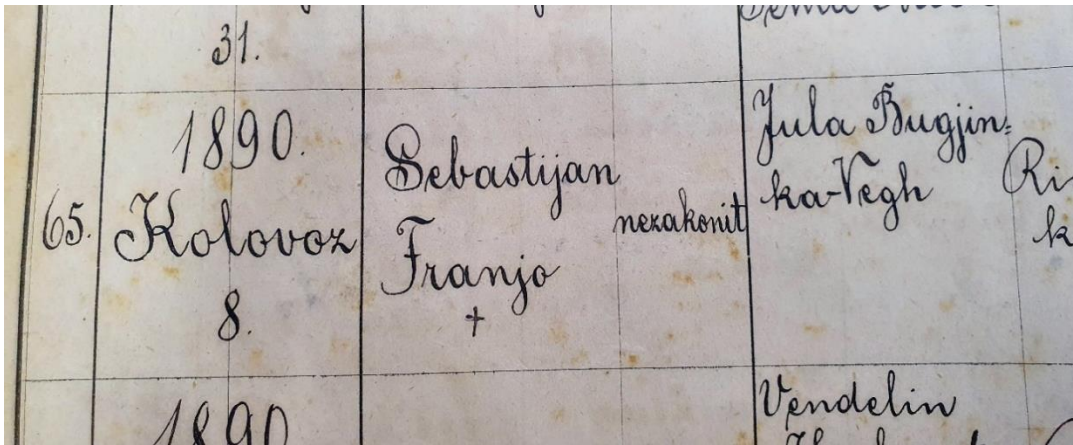 31.
65.
1890.
Kolovoz
8.
Sebastijan
Franjo
+
nezakonit
Jula Bugjin=
ka-Vegh
Ri
k
1890
Vendelin